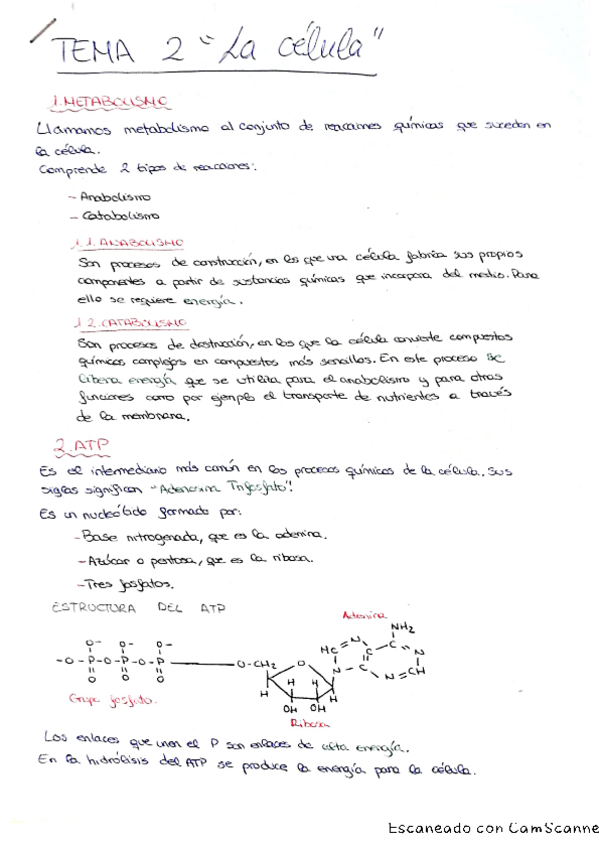 TEMA 2 "La célula"
1.METABOLISMO
Llamamos metabolismo al conjunto de reacciones químicas que suceden en
la célula.
Comprende 2 tipos de reacciones:
- Anabolismo
- Catabolismo
1.1. ANABOLISMO
Son procesos de construcción, en los que una célula fabrica sus propios
componentes a partir de sustancias químicas que incorpora del medio. Para
ello se requiere energía.
1.2. CATABOLISMO
Son procesos de destrucción, en los que la célula convierte compuestos
químicos complejos en compuestos más sencillos. En este proceso se
libera energía que se utiliza para el anabolismo y para otras
funciones como por ejemplo el transporte de nutrientes a través
de la membrana.
2. ATP
Es el intermediario más común en los procesos químicos de la célula. Sus
siglas significan "Adenosina Trifosfato".
Es un nucleótido formado por:
- Base nitrogenada, que es la adenina.
- Azúcar o pentosa, que es la ribosa.
- Tres fosfatos.
ESTRUCTURA DEL ATP
Adenina
NH₂
O- O- O-
HC N C C N
-O-P-O-P-O-P-O O-CH₂ O N C N CH
O O O
H H H H
Grupo fosfato.
OH OH
Ribosa
Los enlaces que unen el P son enlaces de alta energía.
En la hidrólisis del ATP se produce la energía para la célula.
Escaneado con CamScanne